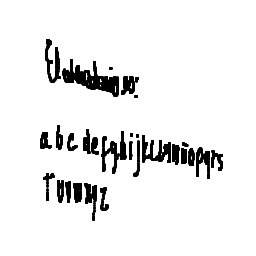 El abecedario es:
a b c d e f g h i j k l m n ñ o p q r s
T u v w x y z